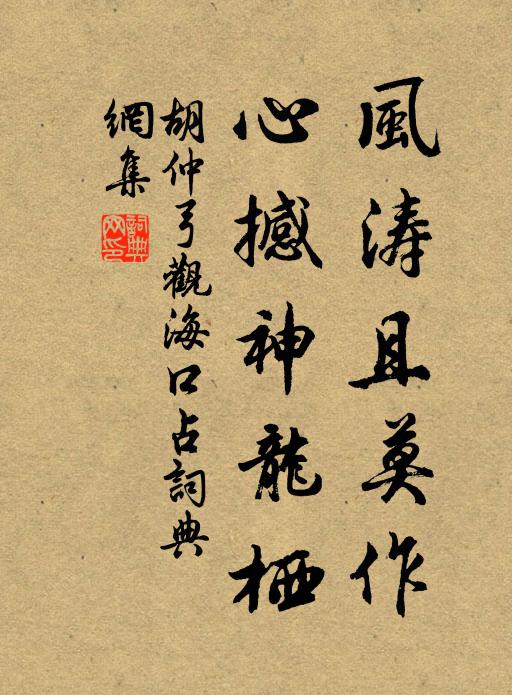 風涛且莫作
心撼神龍栖
胡仲弓觀海口占詞典
網集
詞典网印